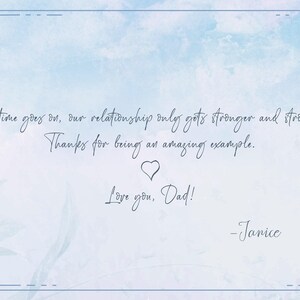 time goes on, our relationship only gets stronger and
Thanks for being an amazing example.
Love you, Dad!
-Janice